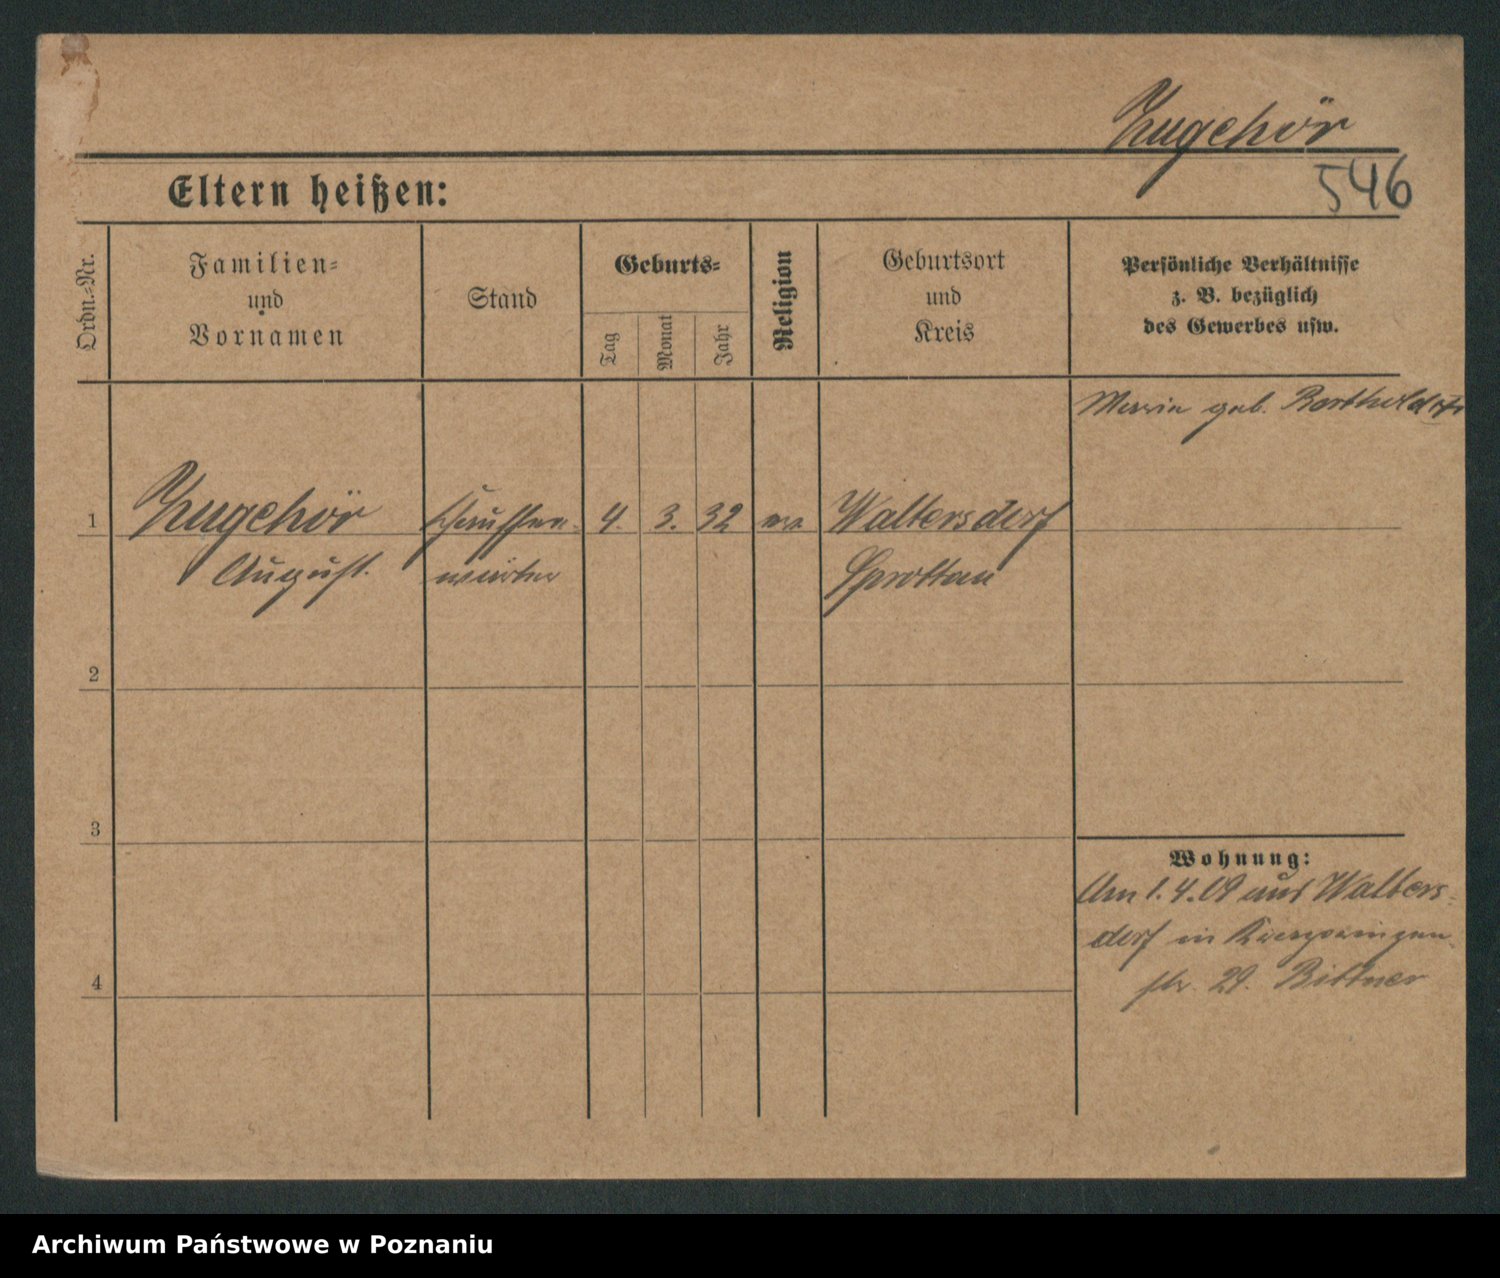 Zugehör
546
Eltern heißen:
Ordn.-Nr.
Familien-
und
Vornamen
Stand
Geburts-
Tag
Monat
Jahr
Religion
Geburtsort
und
Kreis
Persönliche Verhältnisse
z. B. bezüglich
des Gewerbes usw.
Maria geb.
1
Zugehör
Chaussee-
4. 3. 32
Waltersdorf
August.
wärter
Sprottau
2
3
4
Wohnung:
Am 1.4.09 aus Walters-
dorf in
str. 29. Bittner
Archiwum Państwowe w Poznaniu